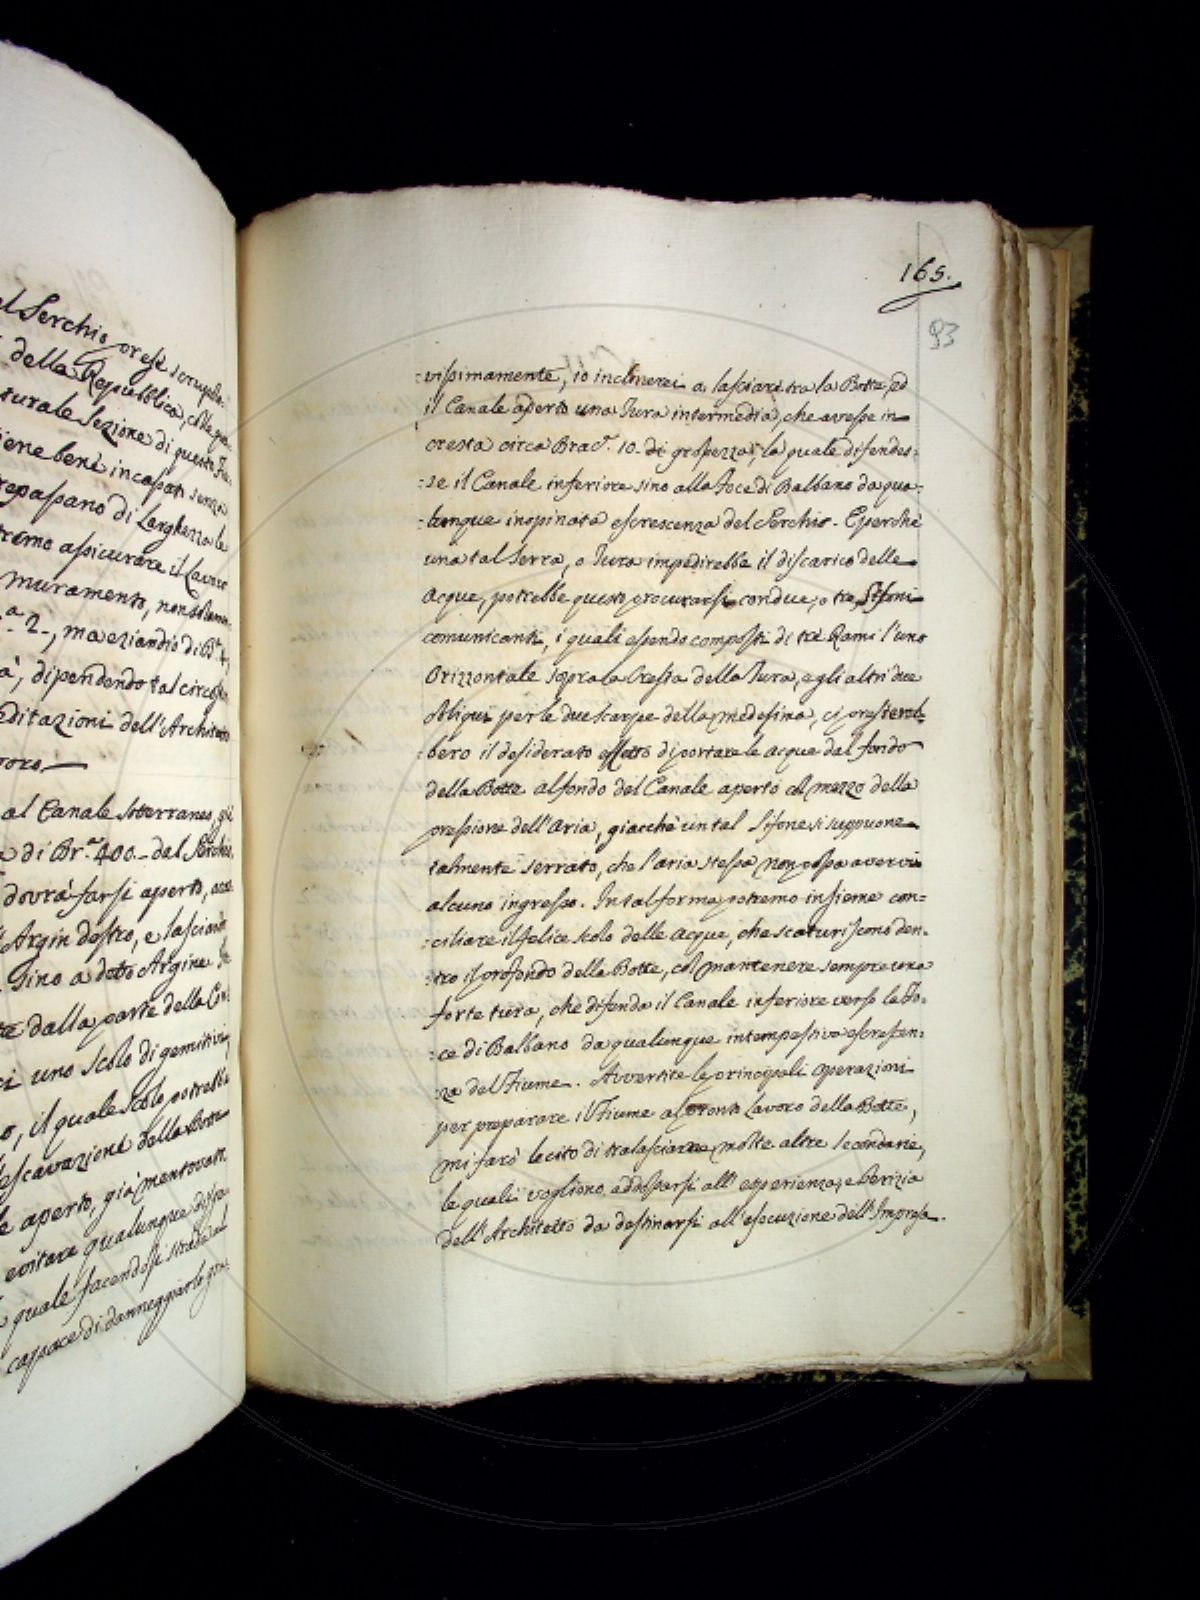 el Serchio prese scrupolo-
della Repubblica, colle qua-
turale Sezione di questo Fiu-
iene bene incassati senza
repassano di Larghezza le
tremo assicurare il Lavoro
muramento, non solamen-
a 2., ma eziandio di Br. 4,
à, dipendendo tal circosta
editazioni dell'Architetto
voro.
al Canale sotterraneo, già
a di Br.e 400. dal Serchio,
dovrà farsi aperto,
l'Argin destro, e lasciando
sino a detto Argine
te dalla parte della
ci uno scolo di gemitivi,
o, il quale scolo potrebbe
escavazione della Botte
le aperto, già mentovati
evitare qualunque
quale facendosi strada
capace di danneggiarlo gra-
165.
93
:vissimamente, io inclinerei a lasciare tra la Botte, ed
il Canale aperto una Tura intermedia, che avesse in
cresta circa Brac.e 10. di grossezza, la quale difendes:
:se il Canale inferiore sino alla Foce di Balbano da qua:
:lunque inopinata escrescenza del Serchio. E perchè
una tal Serra, o Tura impedirebbe il discarico delle
Acque, potrebbe questo procurarsi con due, o tre Sifoni
comunicanti, i quali essendo composti di trè Rami l'uno
Orizzontale sopra la Cresta della Tura, e gli altri due
obliqui per le due scarpe della medesima, ci prestereb:
:bero il desiderato effetto di portare le acque dal fondo
della Botte al fondo del Canale aperto col mezzo della
pressione dell'Aria, giacchè un tal Sifone si suppone
talmente serrato, che l'aria stessa non possa avervi
alcuno ingresso. In tal forma potremo insieme con:
:ciliare il felice scolo delle Acque, che scaturiscono den:
:tro il profondo della Botte, col mantenere sempre una
forte tura, che difenda il Canale inferiore verso la Fo:
:ce di Balbano da qualunque intempestiva escrescen:
:za del Fiume. Avvertite le principali operazioni
per preparare il Fiume al pronto Lavoro della Botte,
mi farò lecito di tralasciarne molte altre secondarie,
le quali vogliono addossarsi all'esperienza, e Perizia
dell'Architetto da destinarsi all'esecuzione dell'Impresa.